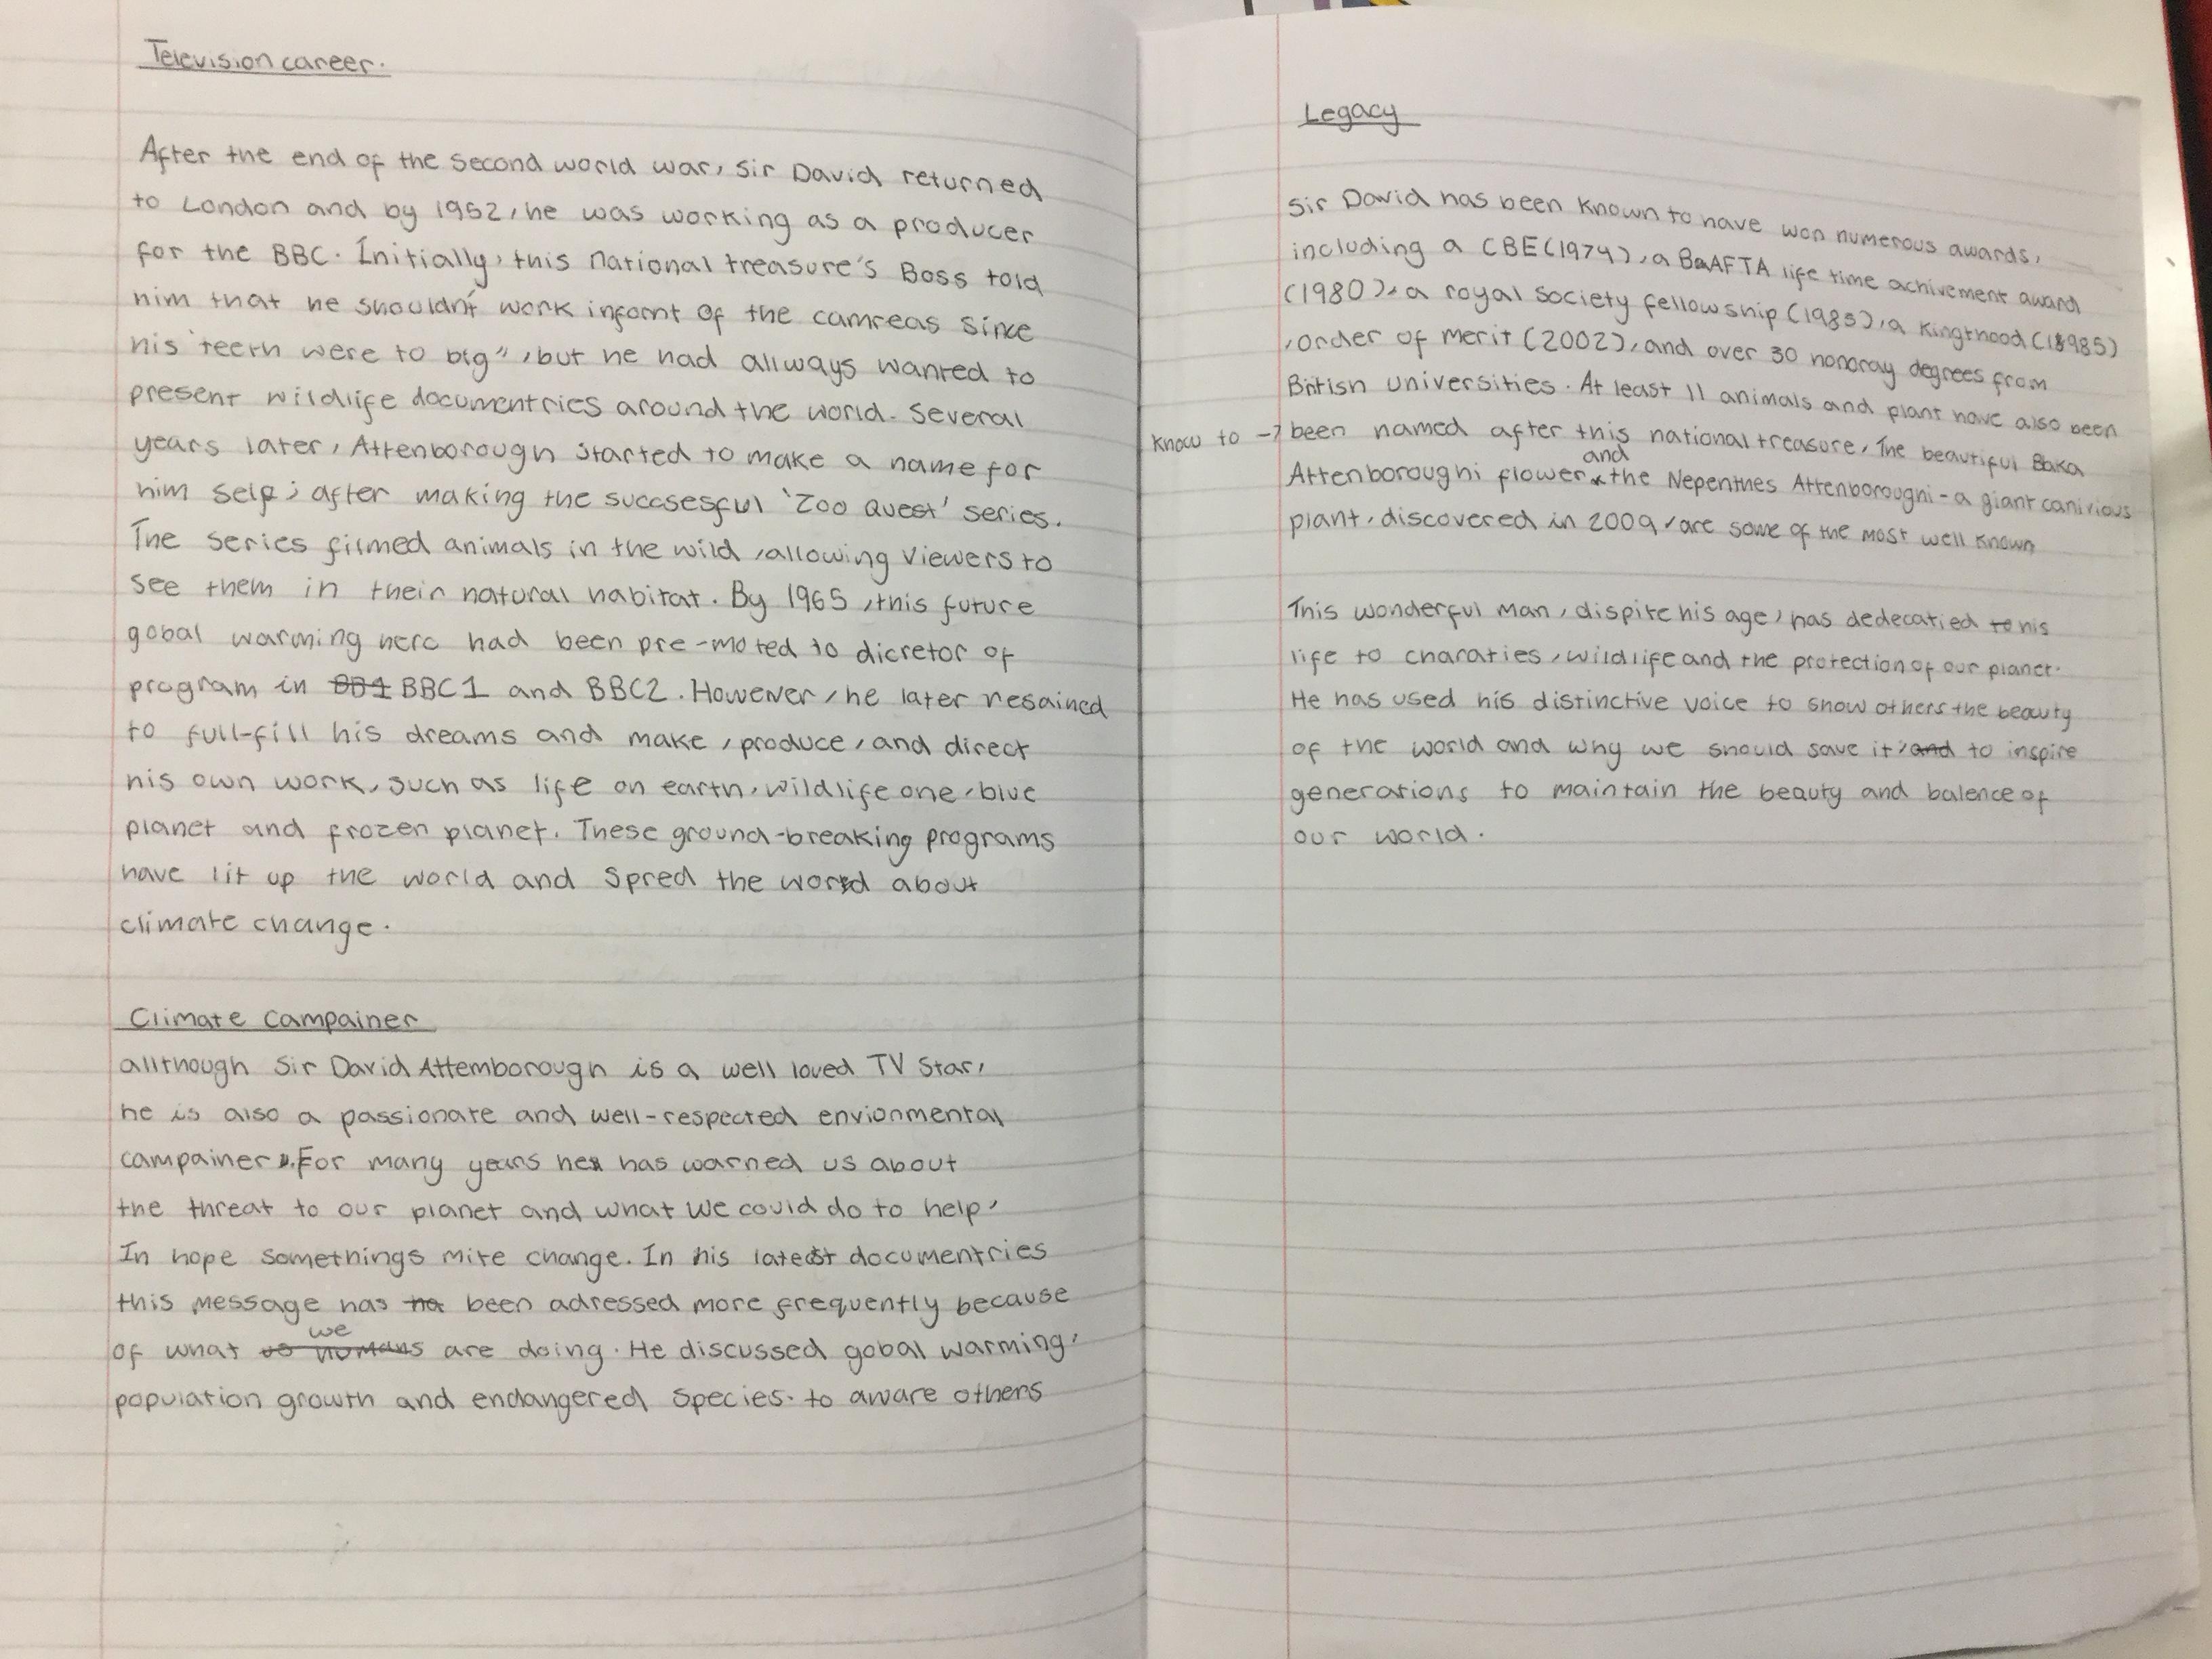 Television career.
After the end of the second world war, Sir David returned
to London and by 1952, he was working as a producer
for the BBC. Initially, this national treasure's Boss told
him that he shouldn't work infornt of the camreas since
his "teeth were to big", but he had allways wanted to
present wildlife documentries around the world. Several
years later, Attenborough started to make a name for
him self; after making the succsesful 'Zoo Quest' series.
The series filmed animals in the wild, allowing viewers to
see them in their natural habitat. By 1965, this future
gobal warming hero had been pre-moted to dicretor of
program in BB1 BBC1 and BBC2. However, he later resained
to full-fill his dreams and make, produce, and direct
his own work, such as life on earth, wildlife one, blue
planet and frozen planet. These ground-breaking programs
have lit up the world and spred the word about
climate change.
Climate campainer
allthough Sir David Attemborough is a well loved TV star,
he is also a passionate and well-respected envionmental
campainer. For many years he has warned us about
the threat to our planet and what we could do to help,
In hope somethings mite change. In his latest documentries
this message has ha been adressed more frequently because
we
of what us humans are doing. He discussed gobal warming,
population growth and endangered species. to aware others
Legacy
Sir David has been known to have won numerous awards,
including a CBE (1974), a BAFTA life time achivement award
(1980), a royal society fellowship (1983), a Kingthood (1985)
, order of merit (2002), and over 30 honoray degrees from
British universities. At least 11 animals and plant have also been
know to → been named after this national treasure, The beautiful Blaka
and
Attenboroughi flower the Nepenthes Attenboroughi - a giant canivious
plant, discovered in 2009, are some of the most well known
This wonderful man, dispite his age, has dedecatied to his
life to charaties, wildlife and the protection of our planet.
He has used his distinctive voice to show others the beauty
of the world and why we should save it, and to inspire
generations to maintain the beauty and balence of
our world.